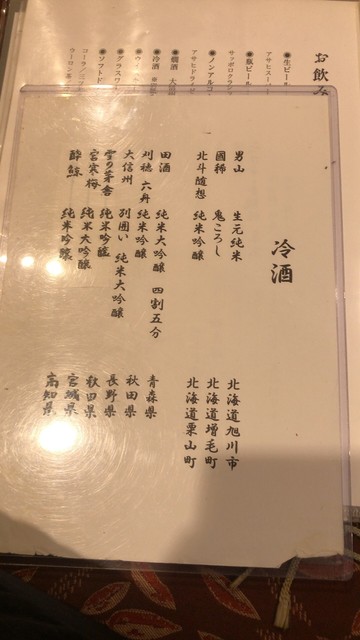 お飲み
●生ビール
アサヒスーパ
●瓶ビール
サッポロクラシ
●ノンアルコ
アサヒドライゼ
●燗酒 大
●冷酒
●グラスワ
●ソフトド
コーラ／ジン
ウーロン茶
冷酒
男山 生元純米 北海道旭川市
國稀 鬼ころし 北海道増毛町
北斗随想 純米吟醸 北海道栗山町
田酒 純米大吟醸 四割五分 青森県
刈穂 六舟 純米吟醸 秋田県
大信州 別囲い 純米大吟醸 長野県
雪の茅舎 純米吟醸 秋田県
宮寒梅 純米大吟醸 宮城県
酔鯨 純米吟醸 高知県